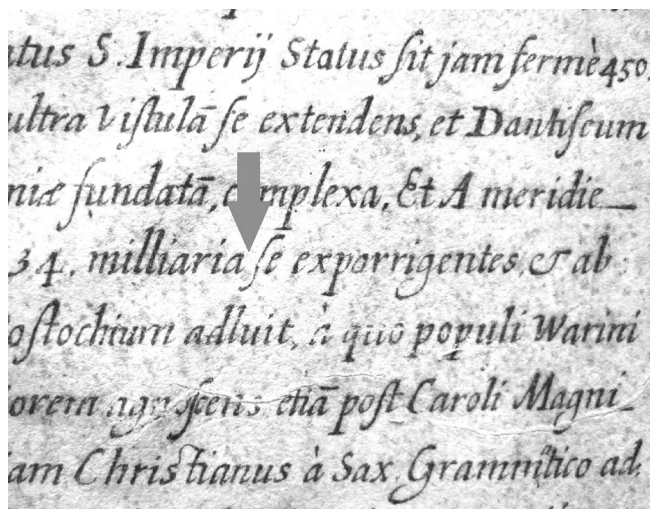 atus S. Imperij Status ſit jam fermè 450.
ultra Viſtulā ſe extendens, et Dantiſcum
niæ fundatā, complexa, Et A meridie
34. milliaria ſe exporrigentes, & ab
oſtochium adluit, à quo populi Warini
orem agnoſcens etiā poſt Caroli Magni
iam Chriſtianus à Sax. Grammatico ad